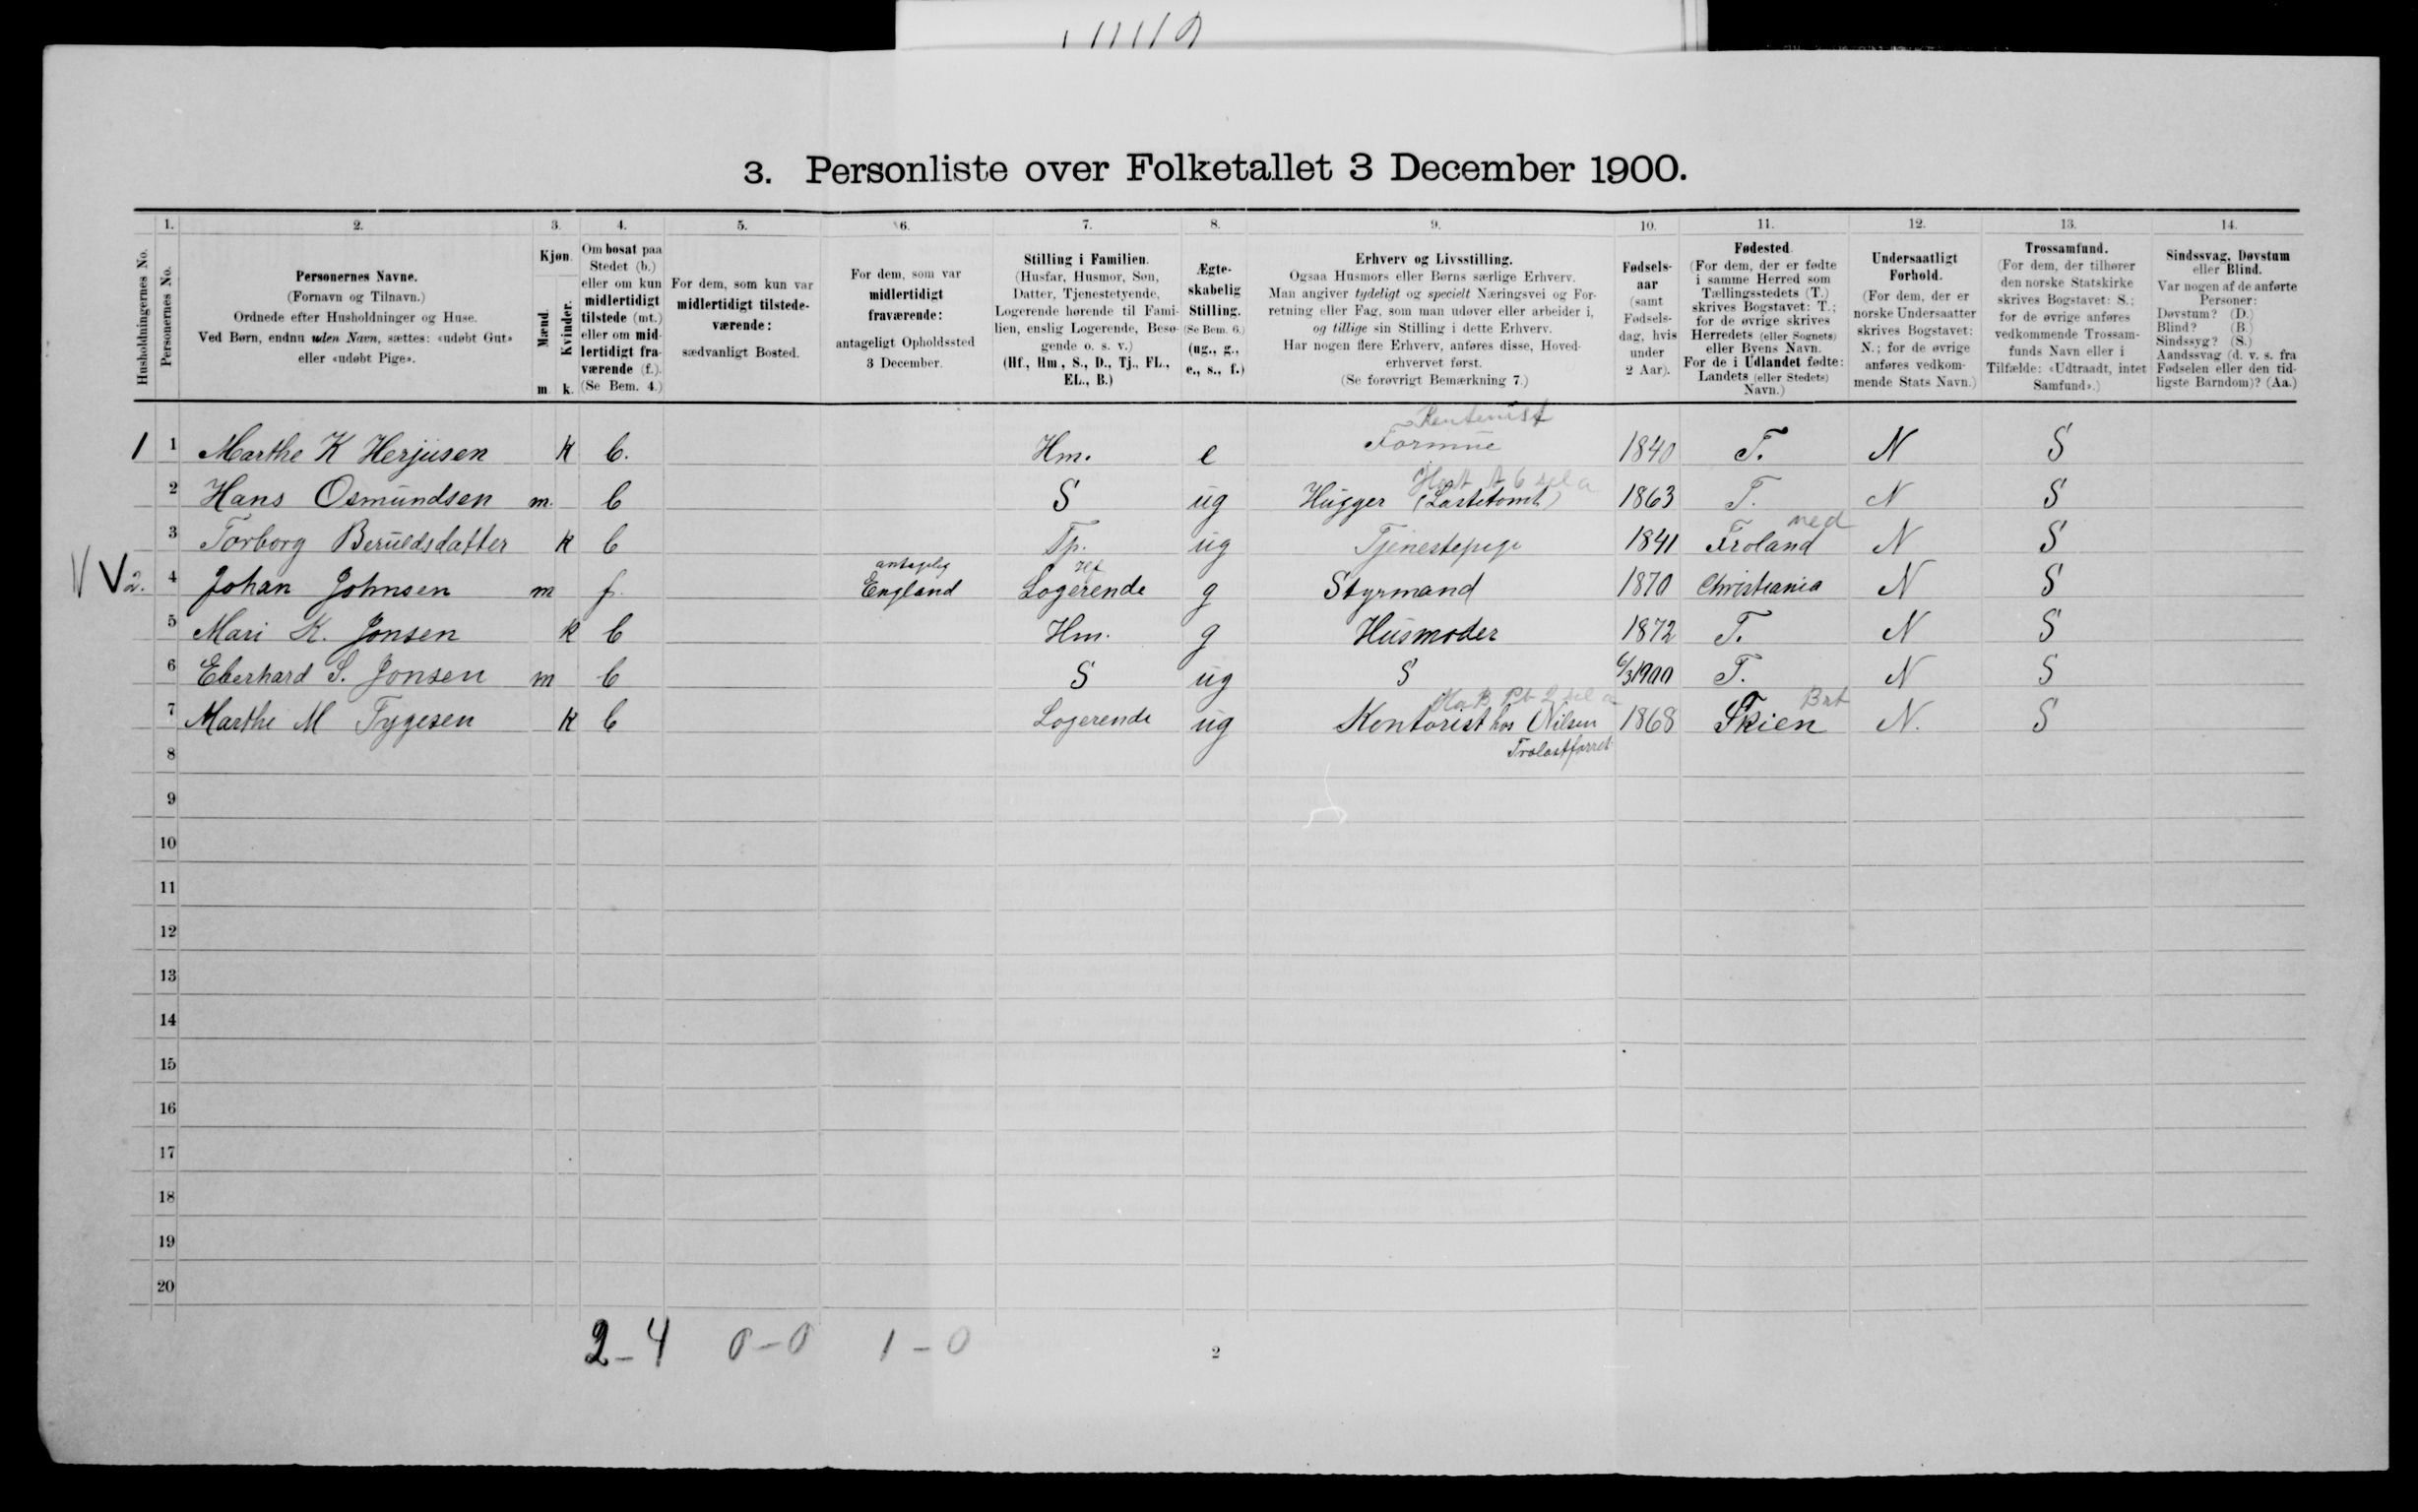 3. Personliste over Folketallet 3 December 1900.
1. 2. 3. 4. 5. 6. 7. 8. 9. 10. 11. 12. 13. 14.
Husholdningernes No.
Personernes No.
Personernes Navne.
(Fornavn og Tilnavn.)
Ordnede efter Husholdninger og Huse.
Ved Børn, endnu uden Navn, sættes: «udøbt Gut»
eller «udøbt Pige».
Kjøn.
Mænd.
Kvinder.
m. k.
Om bosat paa
Stedet (b.)
eller om kun
midlertidigt
tilstede (mt.)
eller om mid-
lertidigt fra-
værende (f.).
(Se Bem. 4.)
For dem, som kun var
midlertidigt tilstede-
værende:
sædvanligt Bosted.
For dem, som var
midlertidigt
fraværende:
antageligt Opholdssted
3 December.
Stilling i Familien.
(Husfar, Husmor, Søn,
Datter, Tjenestetyende,
Logerende hørende til Fami-
lien, enslig Logerende, Besø-
gende o. s. v.)
(Hf., Hm., S., D., Tj., FL.,
EL., B.)
Ægte-
skabelig
Stilling.
(Se Bem. 6.)
(ug., g.,
e., s., f.)
Erhverv og Livsstilling.
Ogsaa Husmors eller Børns særlige Erhverv.
Man angiver tydeligt og specielt Næringsvei og For-
retning eller Fag, som man udøver eller arbeider i,
og tillige sin Stilling i dette Erhverv.
Har nogen flere Erhverv, anføres disse, Hoved-
erhvervet først.
(Se forøvrigt Bemærkning 7.)
Fødsels-
aar
(samt
Fødsels-
dag, hvis
under
2 Aar).
Fødested
(For dem, der er fødte
i samme Herred som
Tællingsstedets (T.)
skrives Bogstavet: T.;
for de øvrige skrives
Herredets (eller Sognets)
eller Byens Navn.
For de i Udlandet fødte:
Landets (eller Stedets)
Navn.)
Undersaatligt
Forhold.
(For dem, der er
norske Undersaatter
skrives Bogstavet:
N.; for de øvrige
anføres vedkom-
mende Stats Navn.)
Trossamfund.
(For dem, der tilhører
den norske Statskirke
skrives Bogstavet: S.;
for de øvrige anføres
vedkommende Trossam-
funds Navn eller i
Tilfælde: «Udtraadt, intet
Samfund».)
Sindssvag, Døvstum
eller Blind.
Var nogen af de anførte
Personer:
Døvstum? (D.)
Blind? (B.)
Sindssyg? (S.)
Aandssvag (d. v. s. fra
Fødselen eller den tid-
ligste Barndom)? (Aa.)
Rentenist
1 1 Marthe K Herjusen k b. Hm. e Formue 1840 T. N S
2 Hans Osmundsen m. b S ug Hugger (Lastetomt) 1863 T. N S
ned
3 Torborg Beruldsdatter k b Tp. ug Tjenestepige 1841 Froland N S
antagelig Hf
2. 4 Johan Johnsen m f. England Logerende g Styrmand 1870 Christiania N S
5 Mari K. Jonsen k b Hm. g Husmoder 1872 T. N S
6 Eberhard S. Jonsen m b S ug S 6/3 1900 T. N S
7 Marthe M Tygesen k b Logerende ug Kontorist hos Nilsen 1868 Skien N. S
Trælastforret
8
9
10
11
12
13
14
15
16
17
18
19
20
2-4 0-0 1-0
2